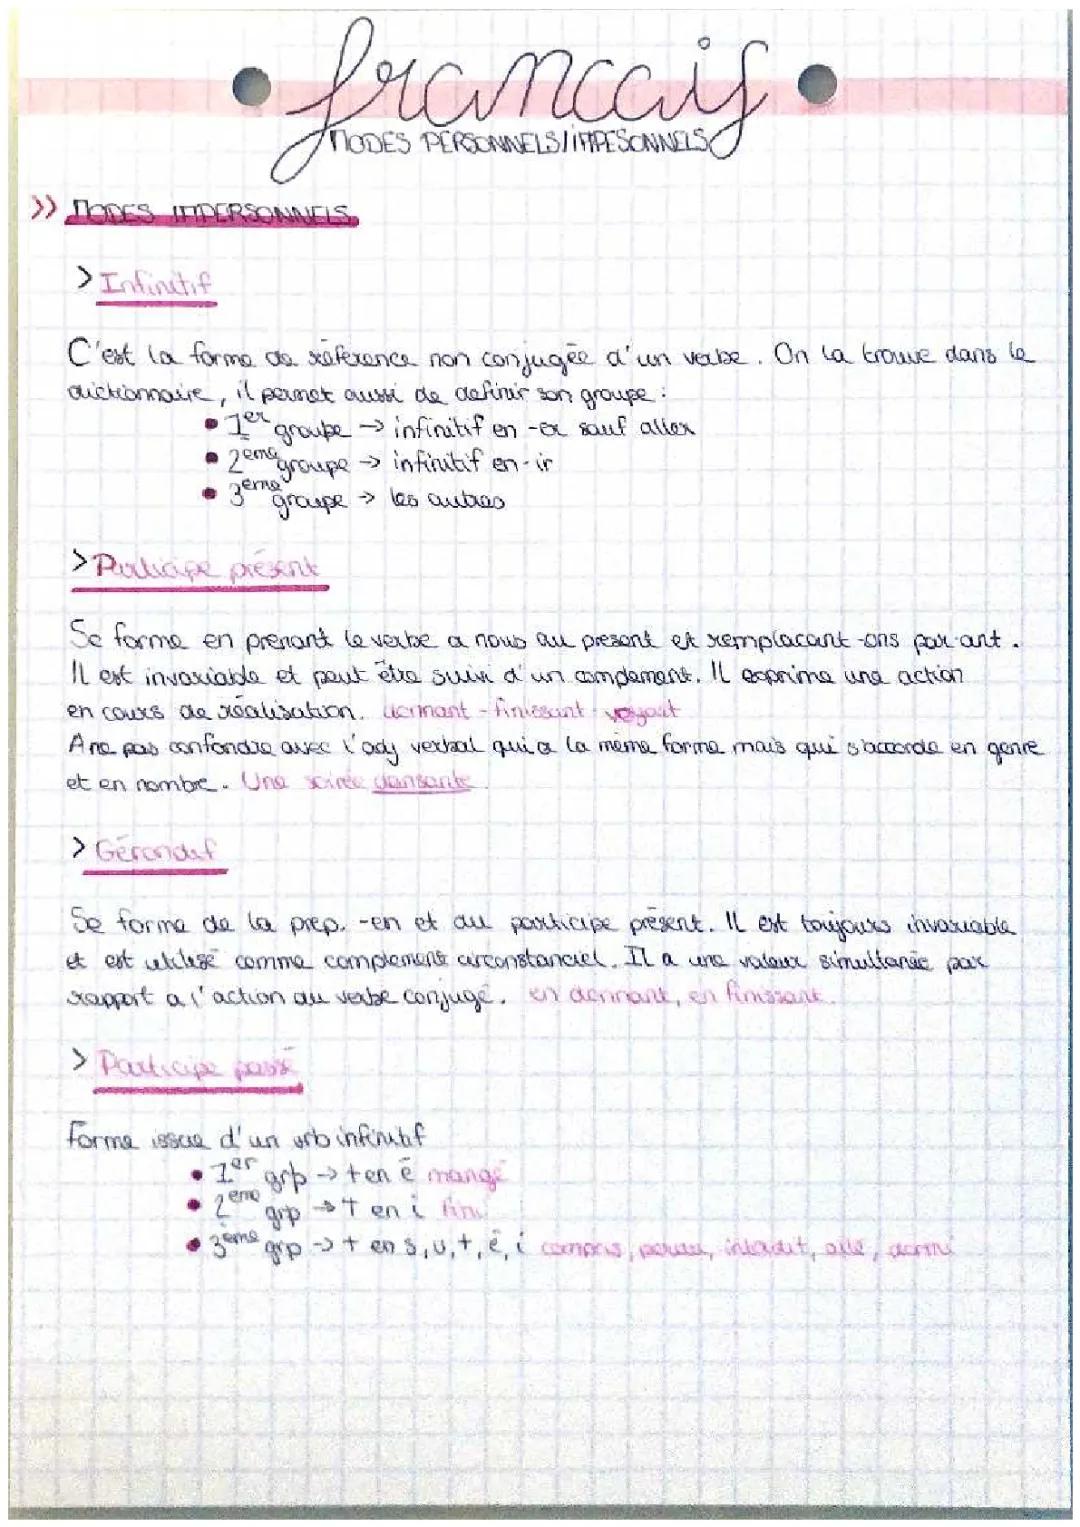 francais
MODES PERSONNELS/IMPESONNELS
>> MODES IMPERSONNELS
> Infinitif
C'est la forme de référence non conjugée d'un verbe. On la trouve dans le
dictionnaire, il permet aussi de definir son groupe :
• 1er groupe → infinitif en -er sauf aller
• 2eme groupe → infinitif en -ir
• 3eme groupe → les autres
> Participe présent
Se forme en prenant le verbe a nous au present et remplacant -ons par -ant.
Il est invariable et peut être suivi d'un complement. Il exprime une action
en cours de réalisation. dormant - finissant - voyant
A ne pas confondre avec l'adj verbal qui a la même forme mais qui s'accorde en genre
et en nombre. Une soirée dansante
> Gérondif
Se forme de la prep. -en et du participe présent. Il est toujours invariable
et est utilisé comme complement circonstanciel. Il a une valeur simultanée par
rapport a l'action du verbe conjugé. en dormant, en finissant.
> Participe passé
Forme issue d'un vrb infinitif
• 1er grp → t en é mangé
• 2eme grp → t en i fini
• 3ème grp → t en s, u, t, é, i compris, perdu, interdit, allé, dormi